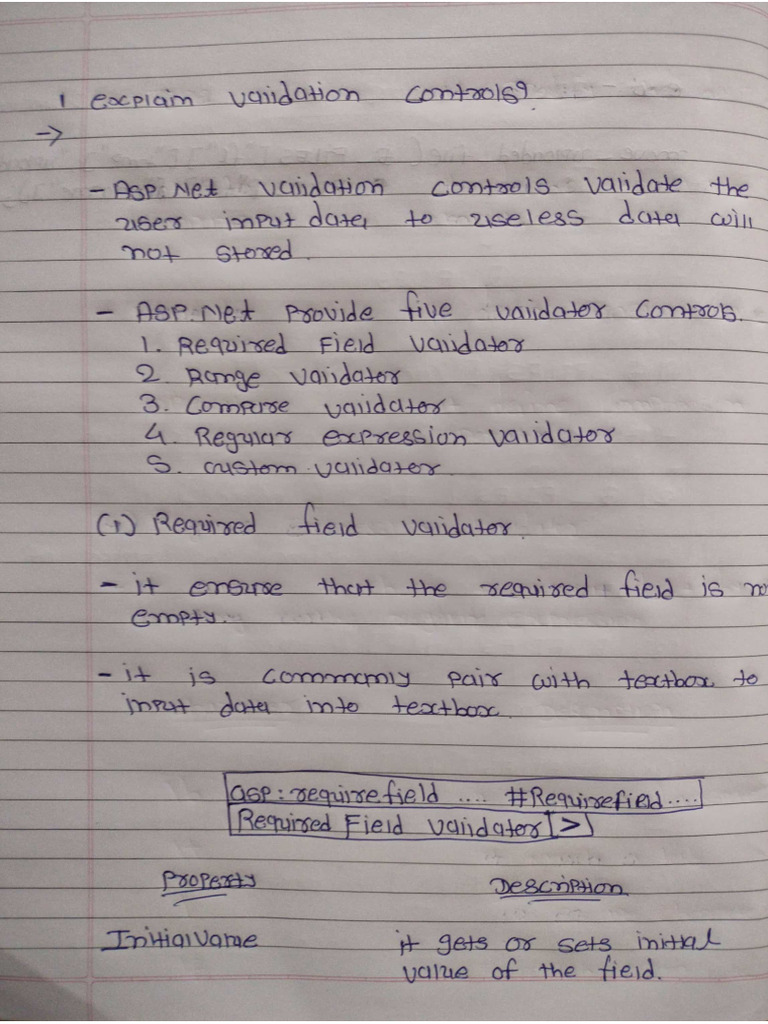 1 explain validation controls?
→
- ASP.Net validation controls validate the
user input data to useless data will
not stored.
- ASP.Net provide five validator controls.
1. Required Field validator
2. Range validator
3. Compare validator
4. Regular expression validator
5. custom validator.
(1) Required field validator.
- it ensure that the required field is
empty.
- it is commonly pair with textbox to
input data into textbox.
asp:requirefield .... #Requirefield....
Required Field validator[>]
Property Description
InitialValue it gets or sets initial
value of the field.